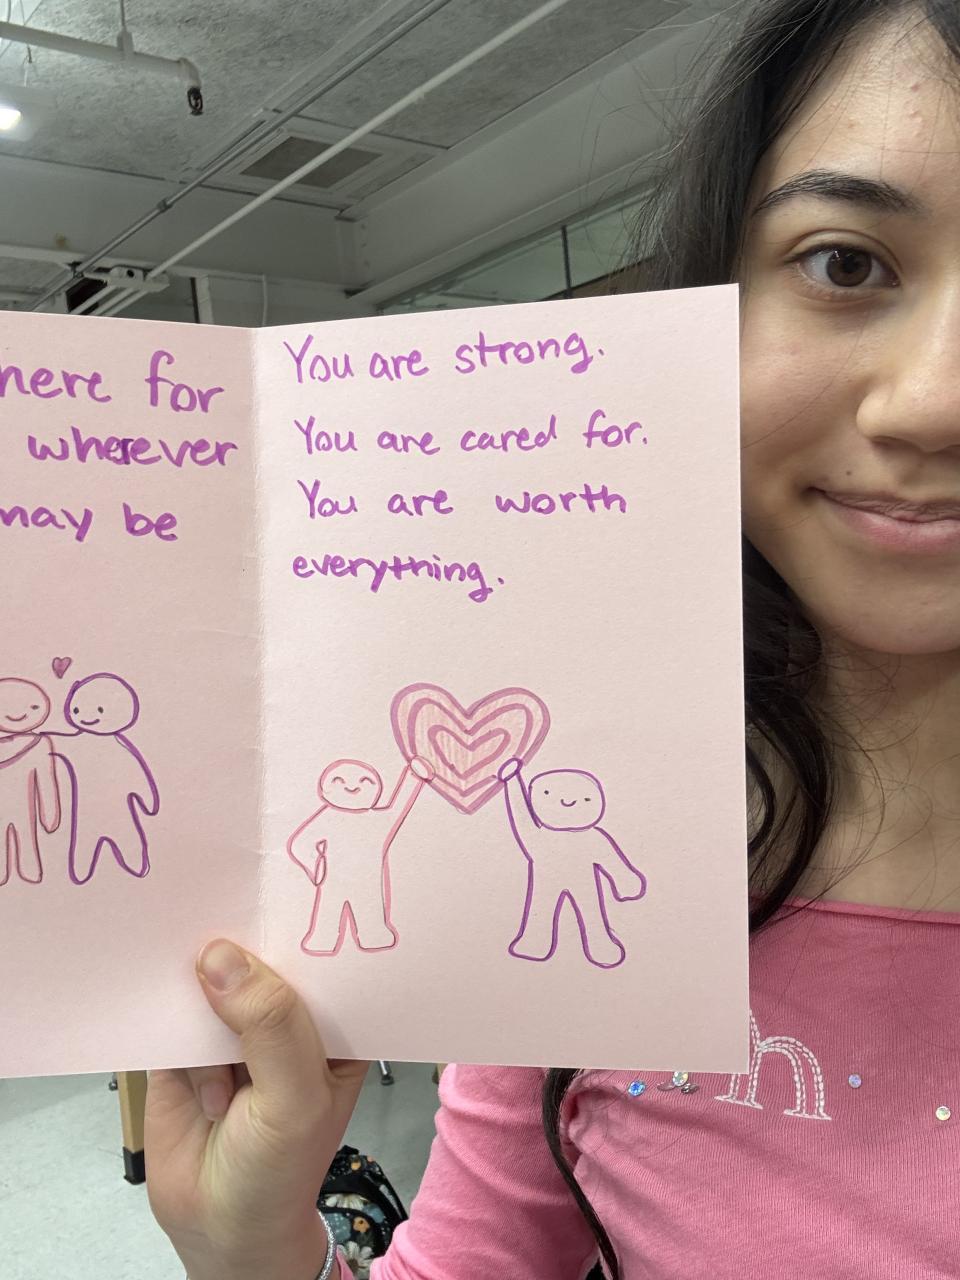 here for
wherever
may be
You are strong.
You are cared for.
You are worth
everything.
h